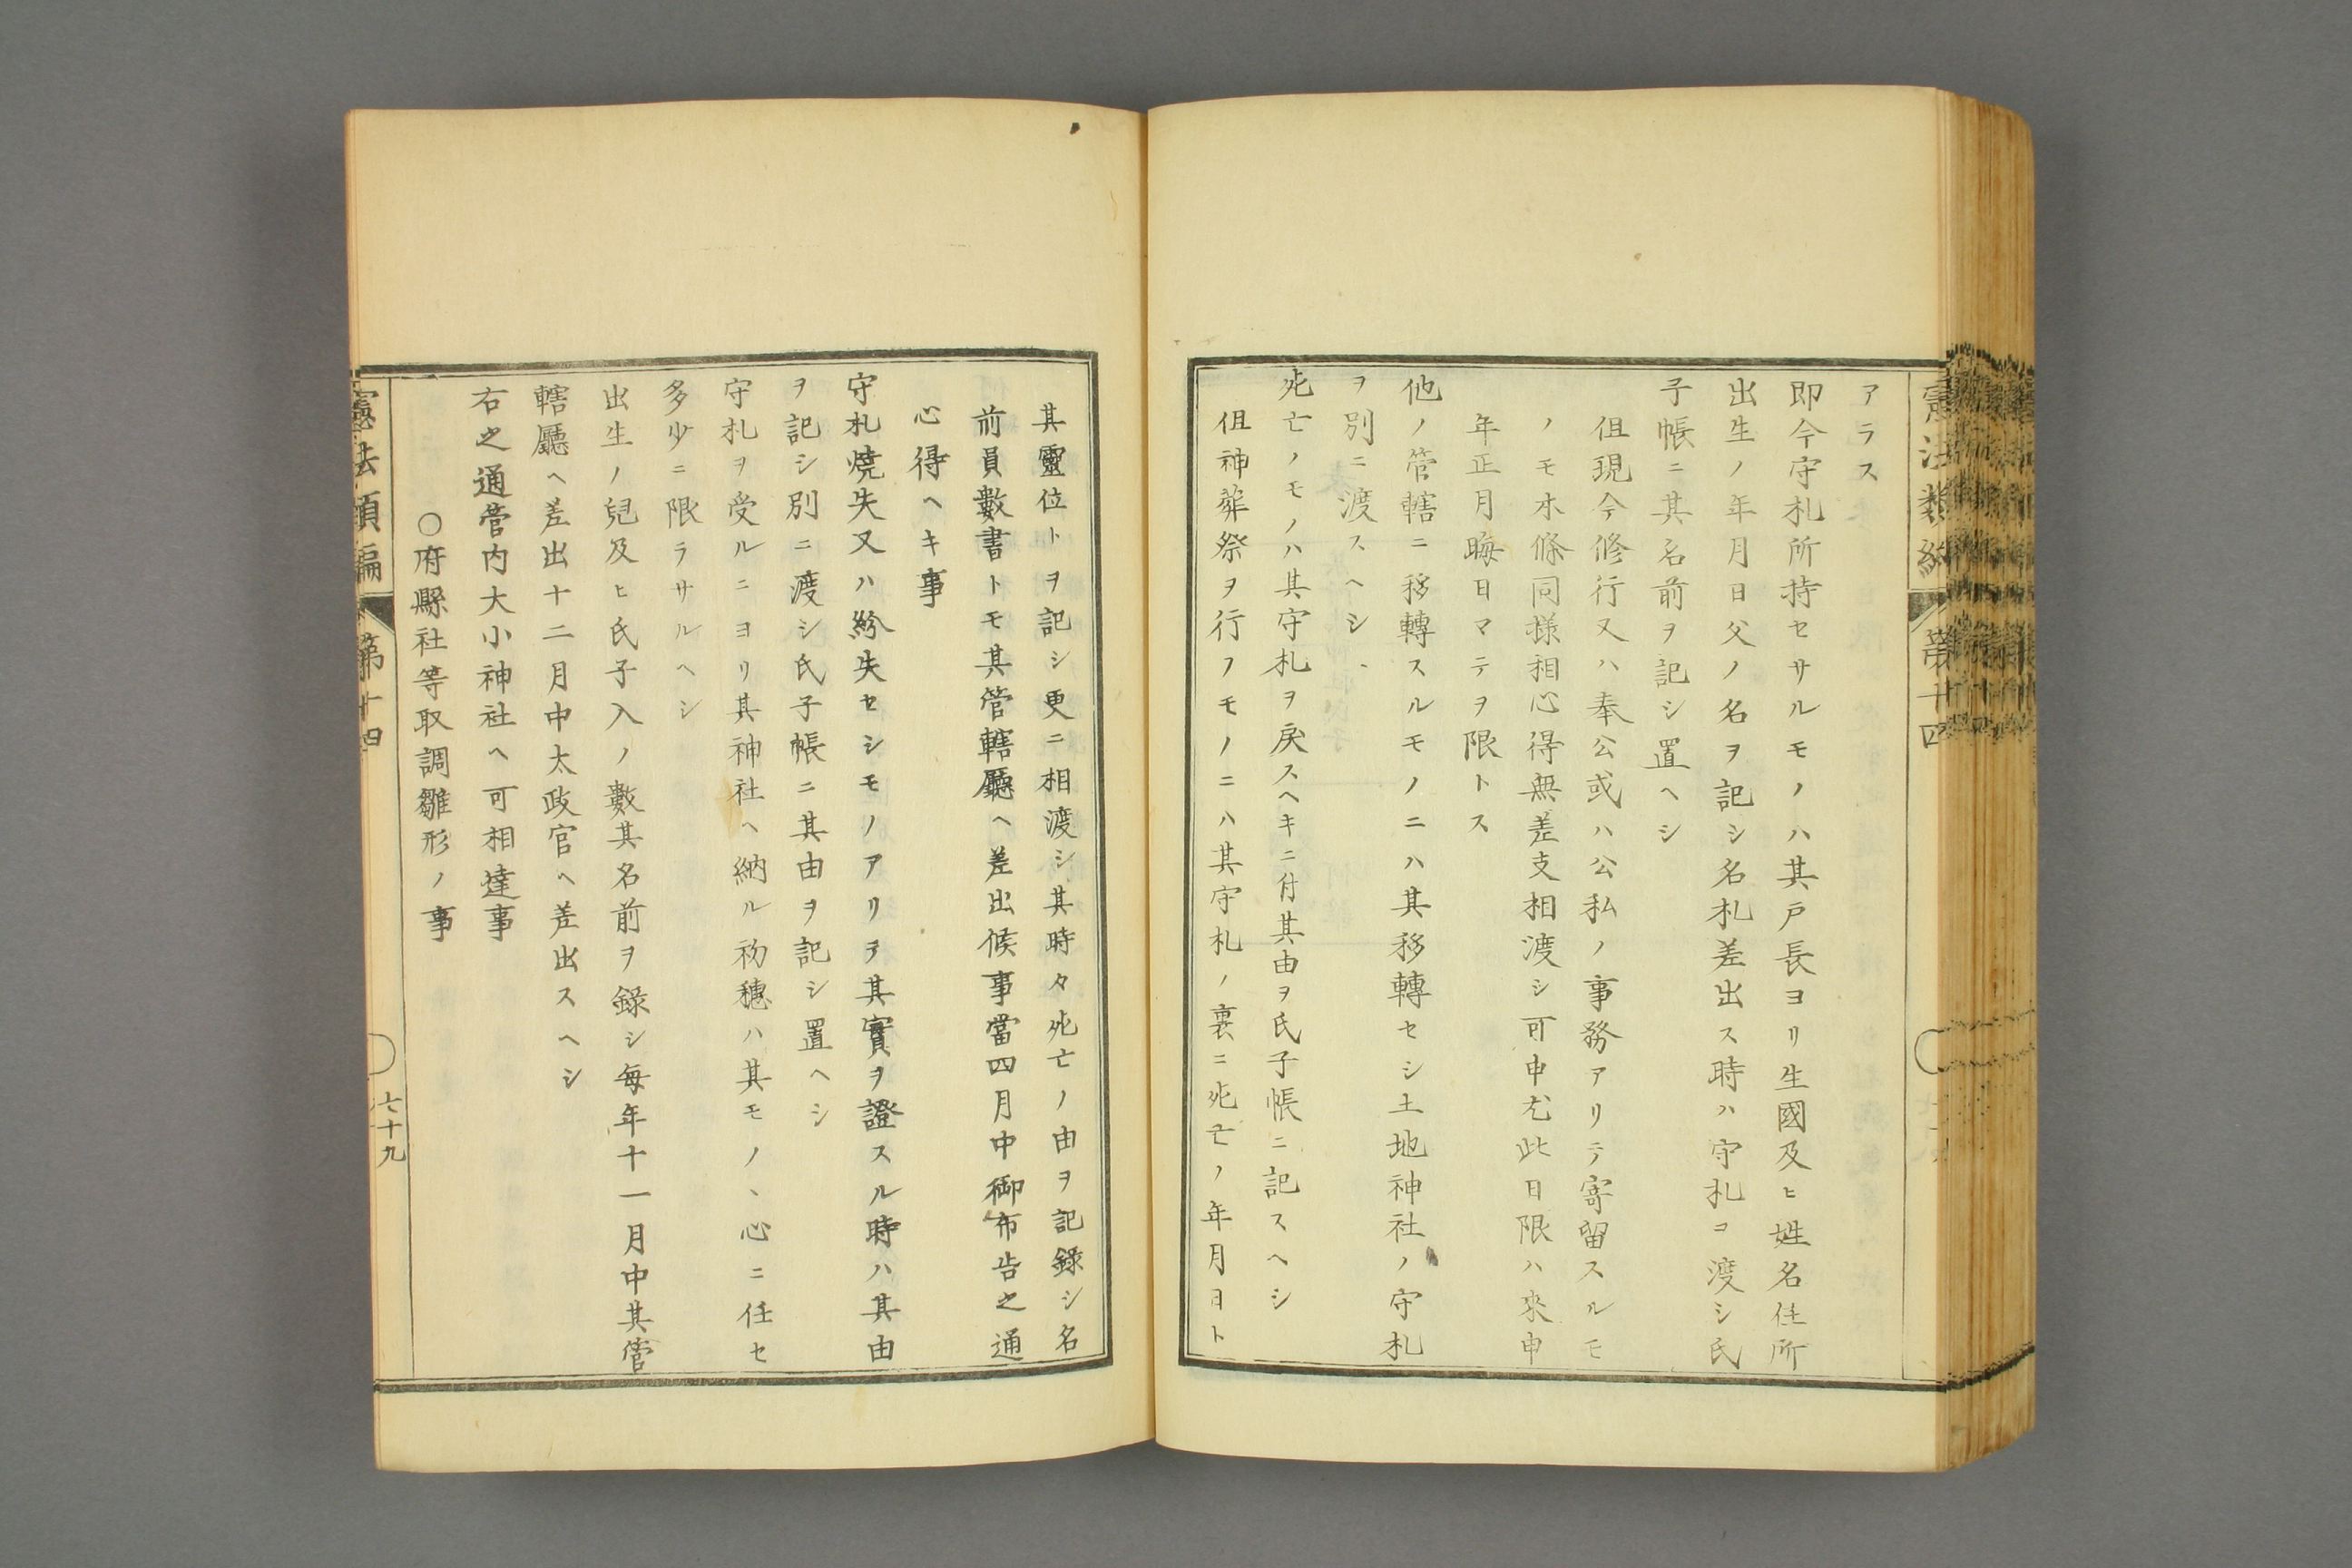 アラス
即今守札所持セサルモノハ其戸長ヨリ生國及ヒ姓名住所
出生ノ年月日父ノ名ヲ記シ名札差出ス時ハ守札ヲ渡シ氏
子帳ニ其名前ヲ記シ置ヘシ
但現今修行又ハ奉公或ハ公私ノ事務アリテ寄留スルモ
ノモ本條同様相心得無差支相渡シ可申尤此日限ハ來申
年正月晦日マテヲ限トス
他ノ管轄ニ移轉スルモノニハ其移轉セシ土地神社ノ守札
ヲ別ニ渡スヘシ、
死亡ノモノハ其守札ヲ戻スヘキニ付其由ヲ氏子帳ニ記スヘシ
但神葬祭ヲ行フモノニハ其守札ノ裏ニ死亡ノ年月日ト
其靈位トヲ記シ更ニ相渡シ其時々死亡ノ由ヲ記録シ名
前員數書トモ其管轄廳ヘ差出候事當四月中御布告之通
心得ヘキ事
守札燒失又ハ紛失セシモノアリテ其實ヲ證スル時ハ其由
ヲ記シ別ニ渡シ氏子帳ニ其由ヲ記シ置ヘシ
守札ヲ受ルニヨリ其神社ヘ納ル初穗ハ其モノヽ心ニ任セ
多少ニ限ラサルヘシ
出生ノ兒及ヒ氏子入ノ數其名前ヲ録シ毎年十一月中其管
轄廳ヘ差出十二月中太政官ヘ差出スヘシ
右之通管内大小神社ヘ可相達事
〇府縣社等取調雛形ノ事
憲法類編 第十四
七十九